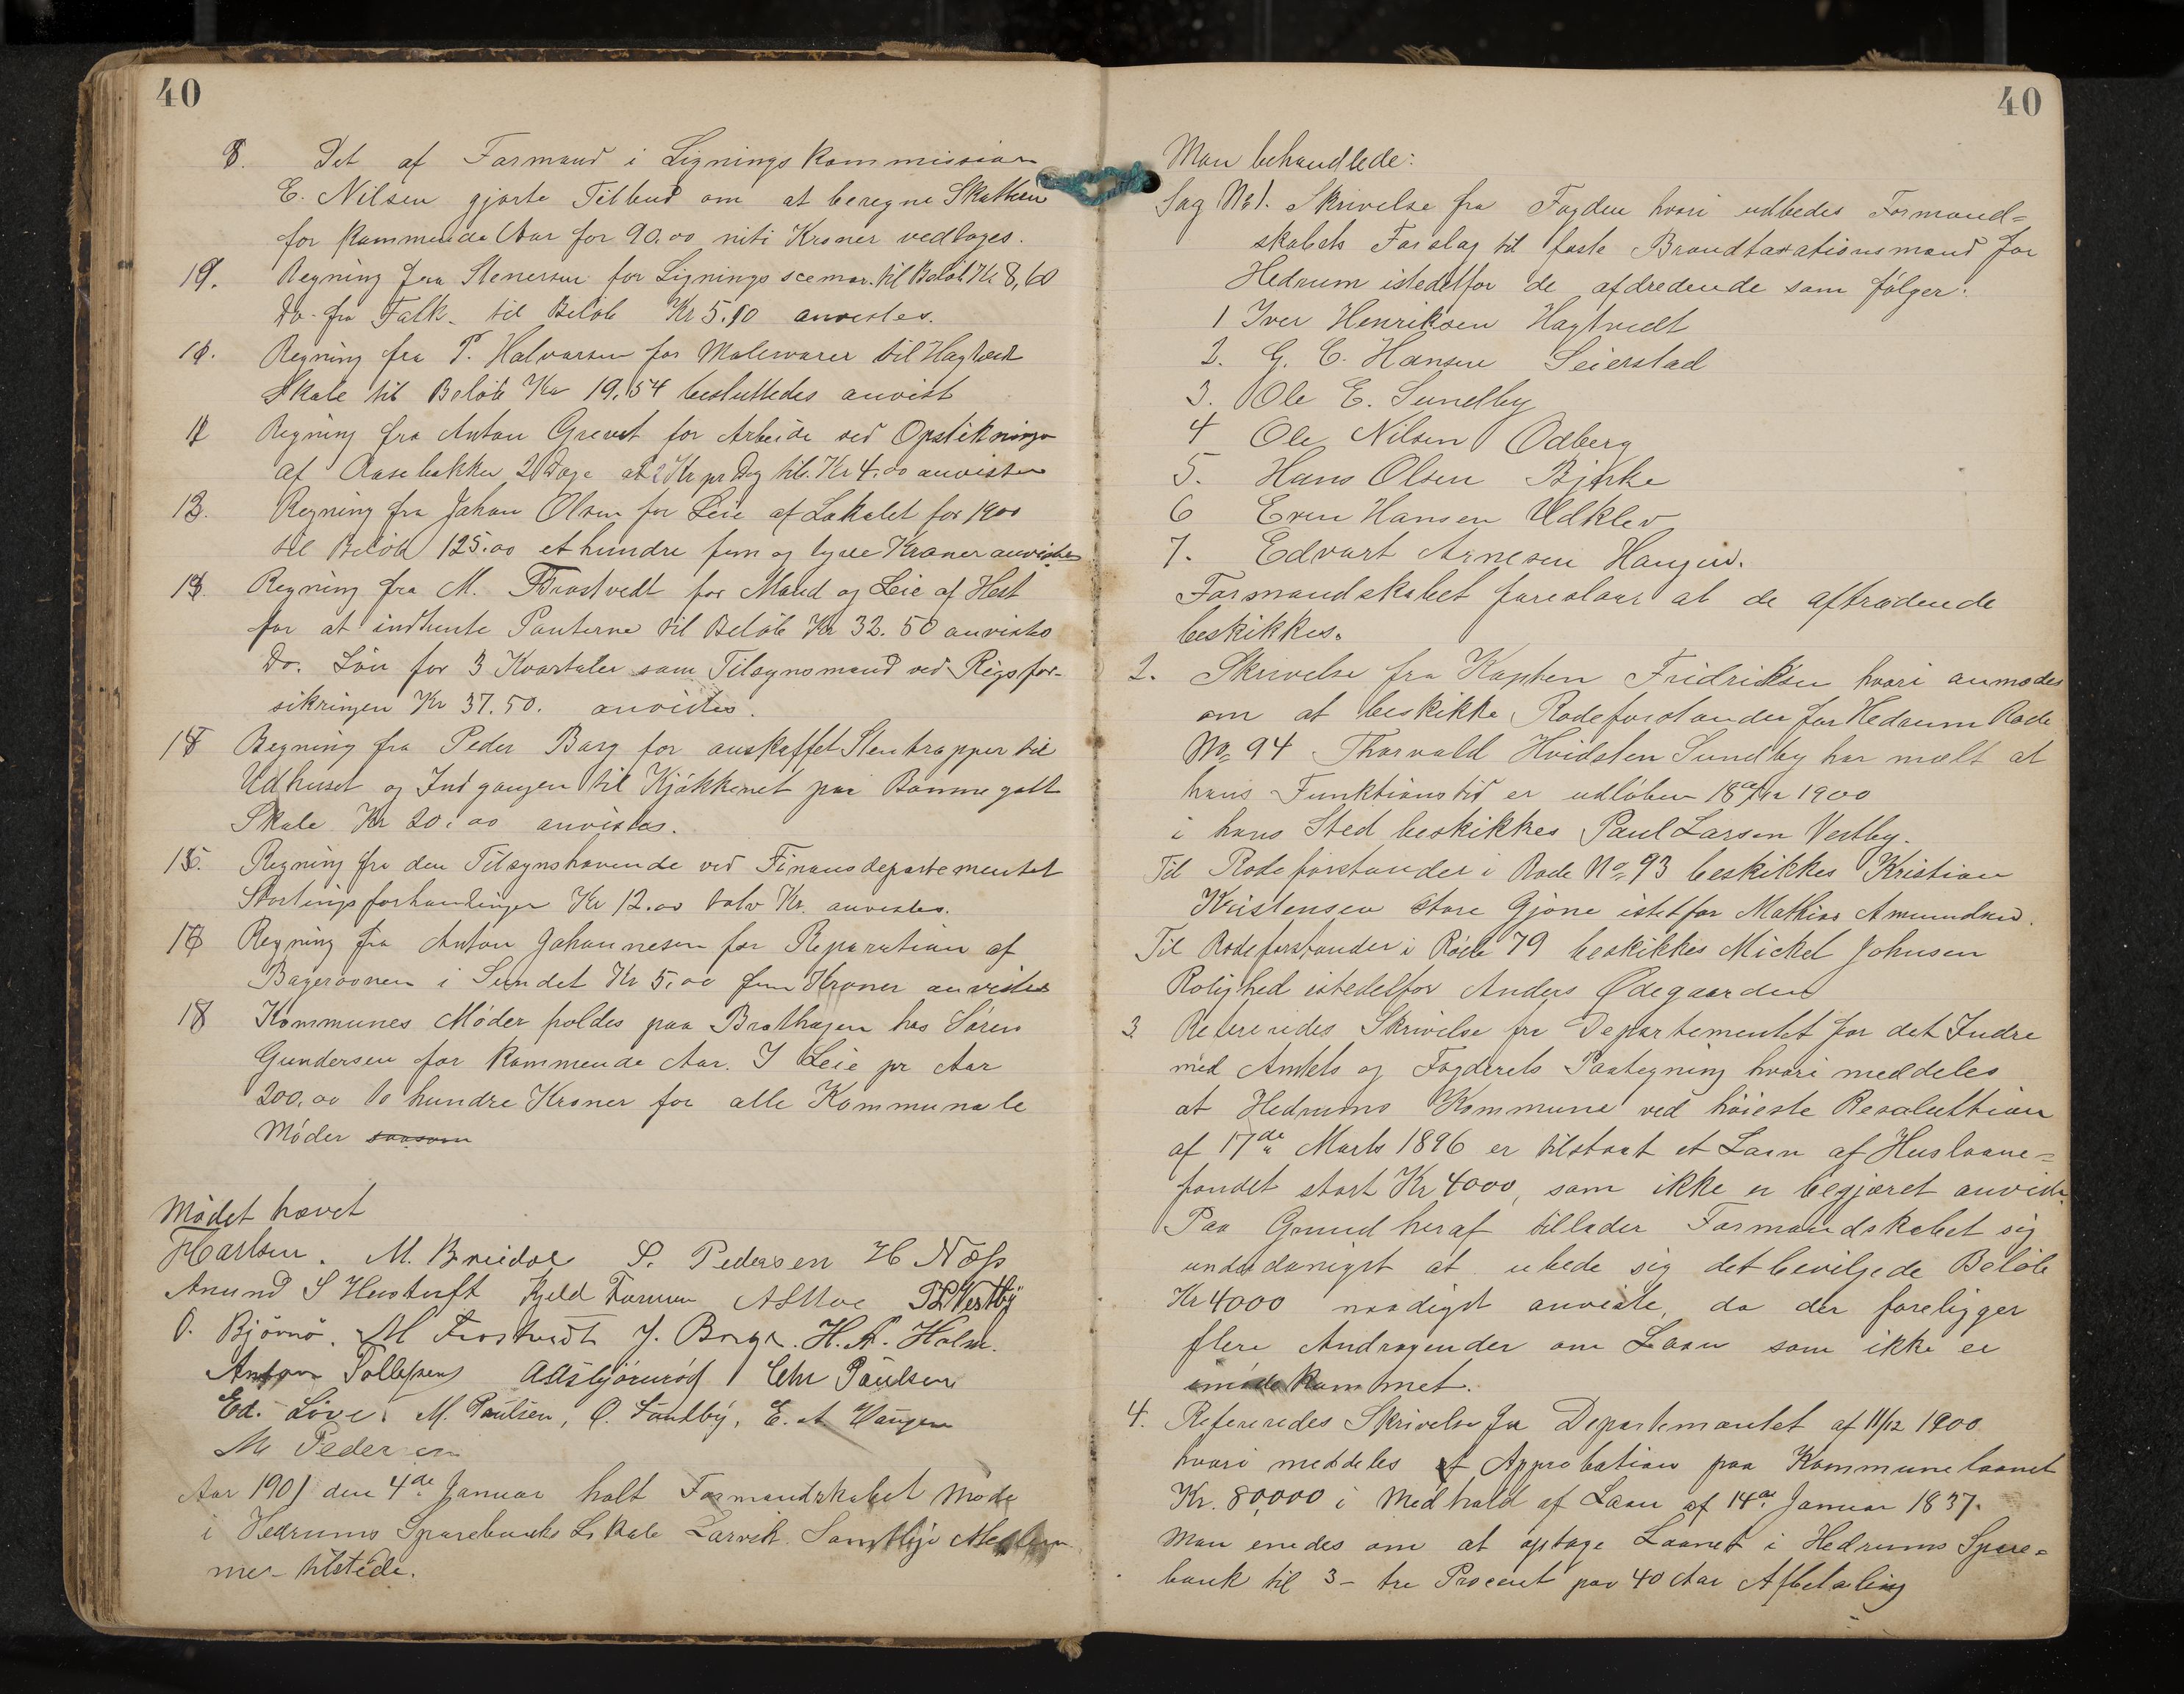 40
8. Det af Formand i Ligningskommission
E. Nilsen gjorte Tilbud om at beregne Skatten
for kommende Aar for 90.00 niti Kroner vedtoges.
19. Regning fra Stenersen for Ligningsscemar. til Beløb Kr 8,60
Do. fra Falk. til Beløb Kr 5.90 anvistes.
Regning fra P. Halvorsen for Malervarer til Hagtvedt
Skole til Beløb Kr 19.54 besluttedes anvist
Regning fra Anton Grevet for Arbeide ved Opstikninge
af Aasebakken 2 Dage at 2 Kr pr Dag til. Kr 4.00 anvistes
Regning fra Johan Olsen for Leie af Lokalet for 1900
til Beløb 125.00 et hundre fem og tyve Kroner anvistes
Regning fra M. Frostvedt for Mand og Leie af Hest
for at indhente Panterne til Beløb Kr 32.50 anvistes
Do. Løn for 3 Kvartaler som Tilsynsmand ved Rigsfor-
sikringen Kr 37.50. anvistes.
Regning fra Peder Borg for anskaffet Stentrapper til
Udhuset og Indgangen til Kjøkkenet paa Bommegott
Skole Kr 20.00 anvistes.
Regning fra den Tilsynshavende ved Finansdepartementet
Stortingsforhandlinger Kr 12.00 tolv Kr. anvistes.
Regning fra Anton Johannesen for Reparation af
Bagerovnen i Sundet Kr 5.00 fem Kroner anvistes
18 Kommunes Møder holdes paa Brathagen hos Søren
Gundersen for kommende Aar. I Leie pr Aar
200.00 to hundre Kroner for alle Kommunale
Møder saasom
Mødet hævet
Karlsen. M. Breidal S. Pedersen H Næss
Anund S Hvostuft Kjeld Farmen A S Moe P L Vestby
O. Bjørnø. M Frostvedt J. Borge. H. A. Holm.
Anton Tollefsen A Asbjørnrød Chr Paulsen
Ed. Løve. M. Paulsen, O. Sundby, E. A Haugen
M Pedersen
Aar 1901 den 4de Januar holt Formandskabet Møde
i Hedrums Sparebanks Lokale Larvik. Samtlige Medlem
mer tilstede.
40
Man behandlede:
Sag No 1. Skrivelse fra Fogden hvori udbedes Formand=
skabets Forslag til faste Brandtaxationsmænd for
Hedrum istedetfor de afdredende som følger:
1 Iver Henriksen Hagtvedt
2. G. E. Hansen Seierstad
3. Ole E. Sundby
4 Ole Nilsen Odberg
5. Hans Olsen Bjerke
6 Even Hansen Udklev
7. Edvart Arnesen Haugen.
Formandskabet foreslaar at de aftrædende
beskikkes.
2. Skrivelse fra Kaptein Fridriksen hvori anmodes
om at beskikke Rodeforstander for Hedrum Rode
No. 94 Thorvald Hvidsten Sundby har mælt at
hans Funktionstid er udløben 1900
i hans Sted beskikkes Paul Larsen Vestby.
Til Rodeforstander i Rode No. 93 beskikkes Kristian
Kristensen Store Gjone istetfor Mathias Amundsen.
Til Rodeforstander i Rode 79 beskikkes Mickel Johnsen
Rolighed istedetfor Anders Ødegaarden
3 Refereredes Skrivelse fra Departementet for det Indre
med Amtets og Fogderets Paategning hvori meddeles
at Hedrums Kommune ved høieste Resoluttion
af 17de Marts 1896 er tilstaat et Laan af Huslaane=
fondet stort Kr 4000, som ikke er begjæret anvist.
Paa Grund heraf tillader Formandskabet sig
underdanigst at udbede sig det bevilgede Beløb
Kr 4000 naadigst anviste, da der foreligger
flere Andragender om Laan som ikke er
imødekommet.
4. Refereredes Skrivelse fra Departementet af 11/12 1900
hvori meddeles at Approbation paa Kommunelaanet
Kr. 80,000 i Medhold af Laan af 14de Januar 1837.
Man enedes om at optage Laanet i Hedrums Spare=
bank til 3 - tre Procent paa 40 Aar Afbetaling